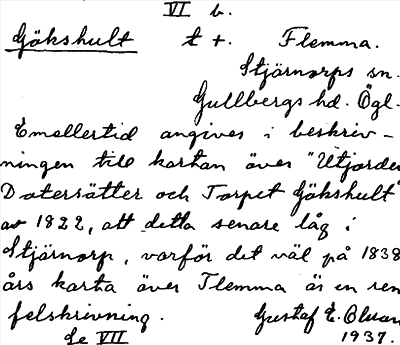 VI b.
Gökshult t +. Flemma.
Stjärnorps sn.
Gullbergs hd. Ögl.
Emellertid angives i beskriv-
ningen till kartan över "Utjorden
Dotersätter och Torpet Gökshult"
av 1822, att detta senare låg i
Stjärnorp, varför det väl på 1838
års karta över Flemma är en ren
felskrivning. Gustaf E. Olsson
Se VII 1937.